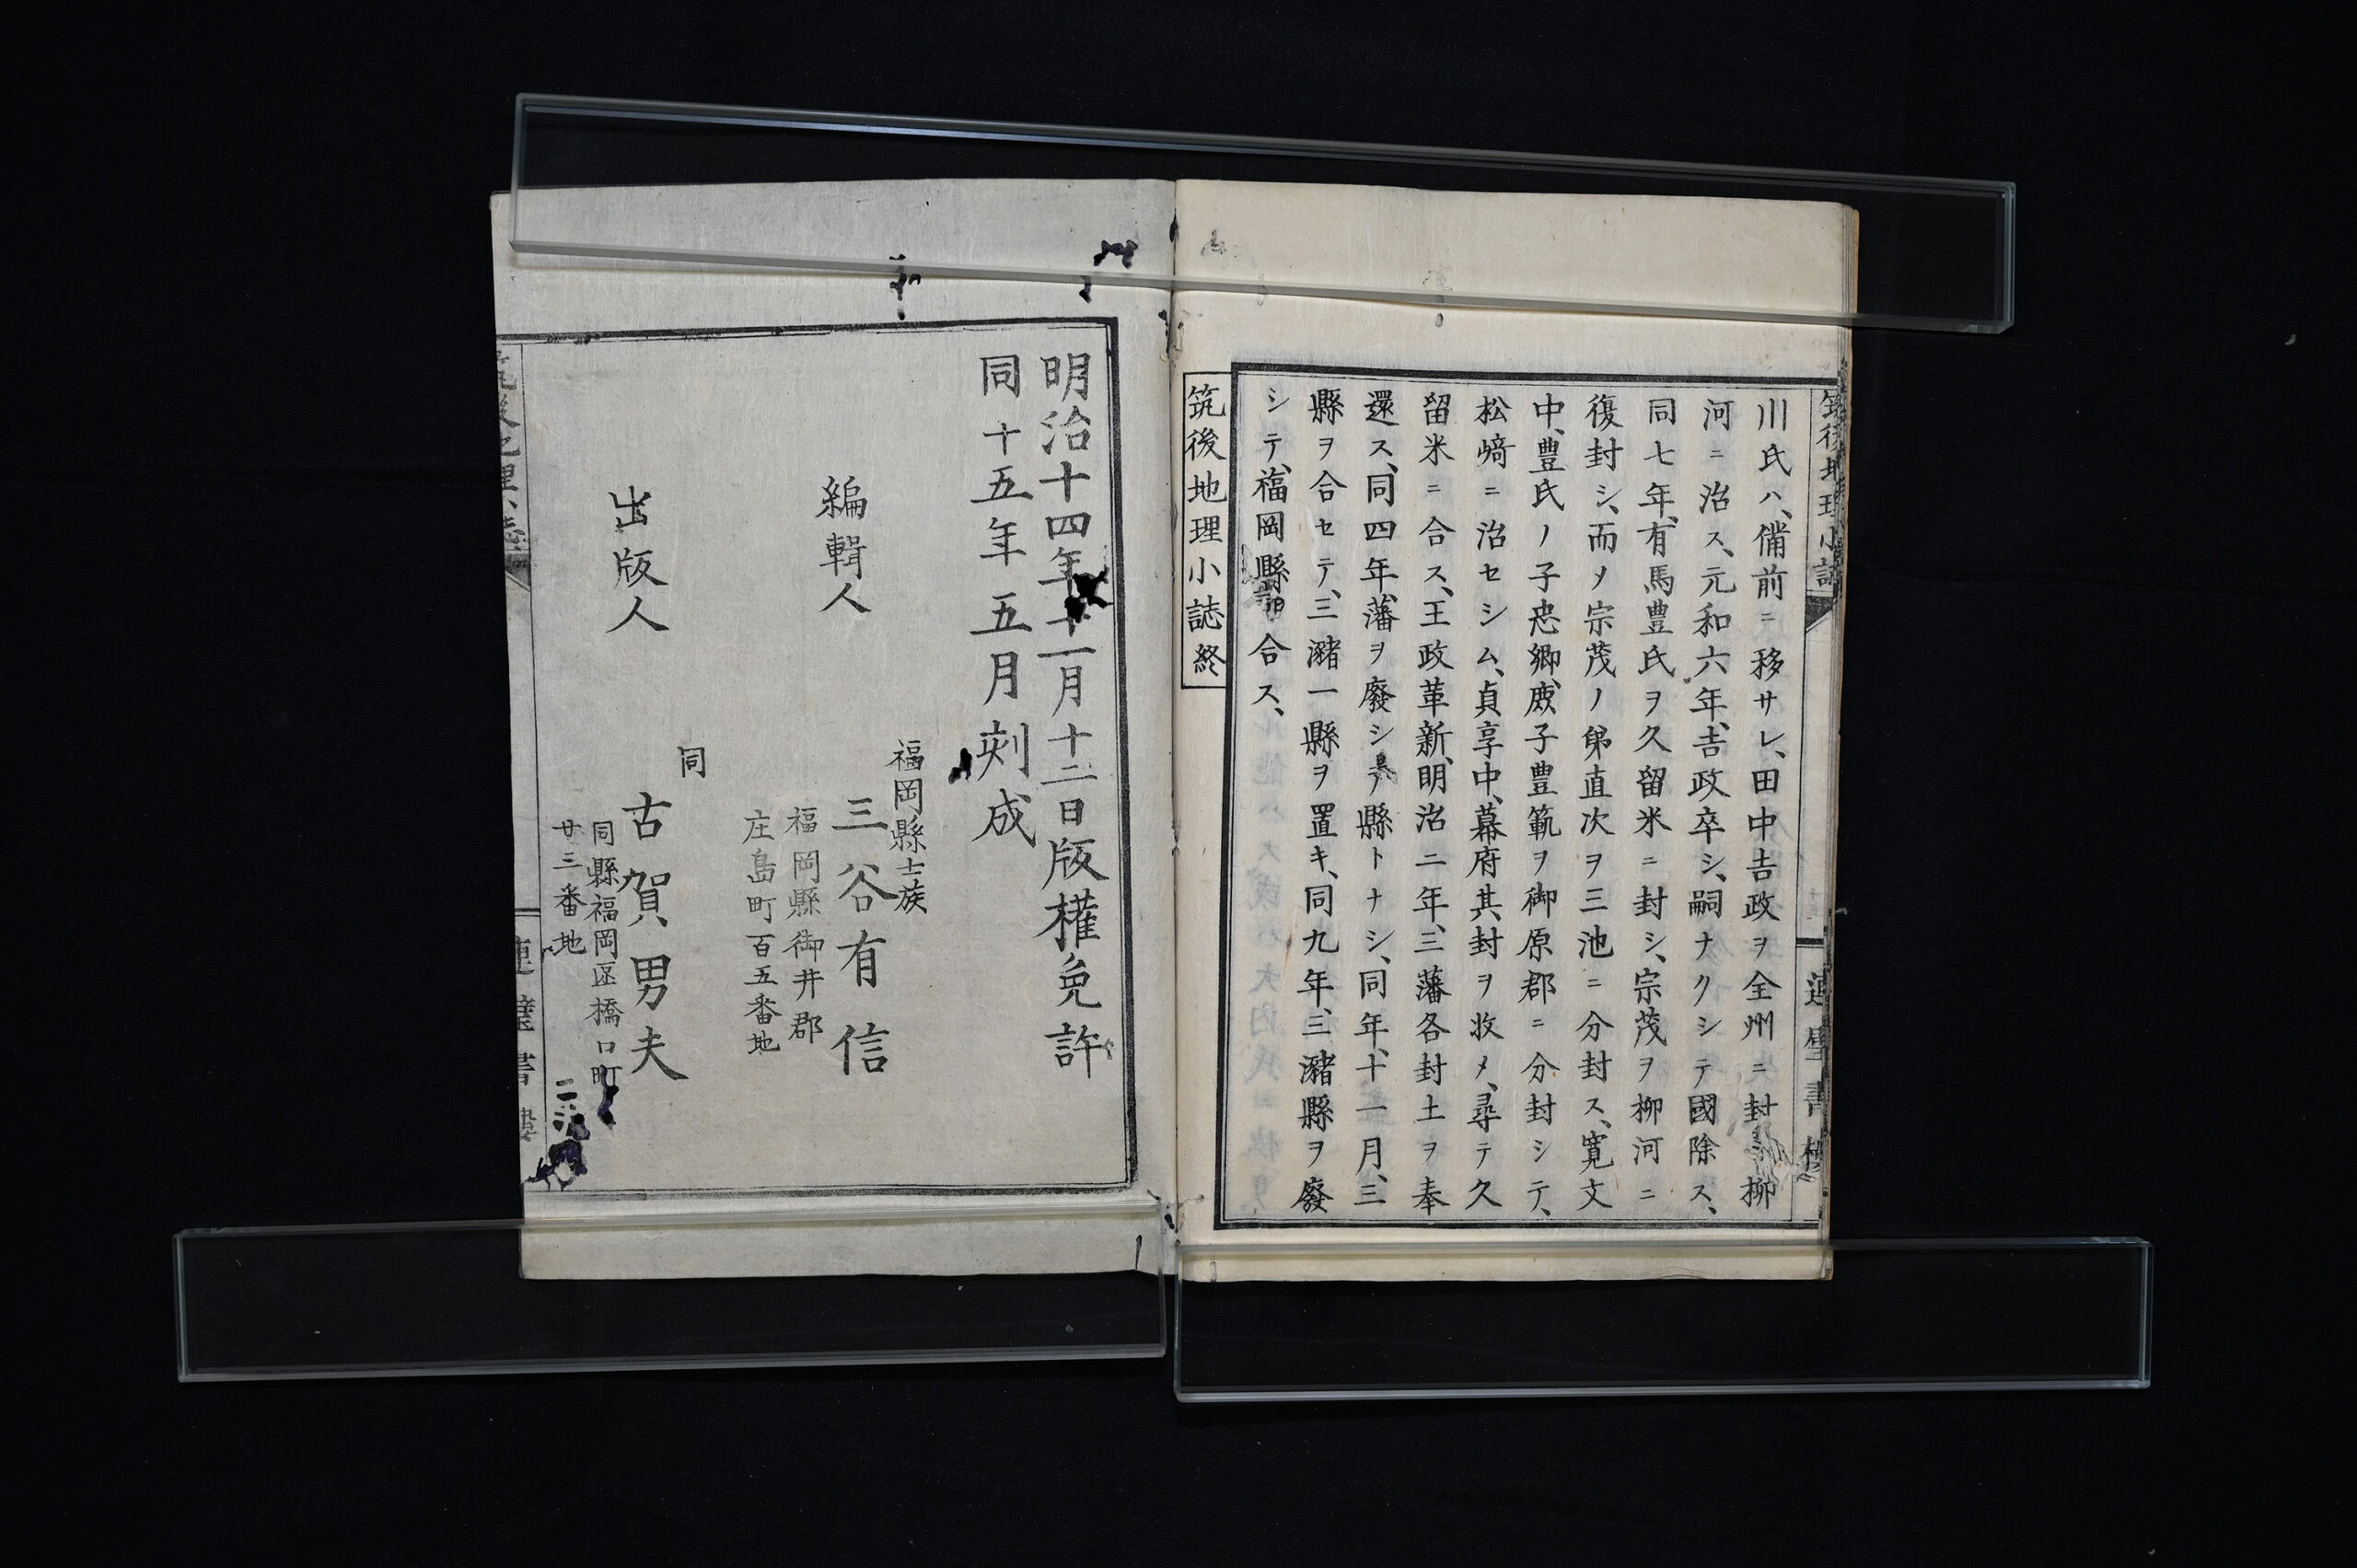 筑後地理小誌
連璧書樓
川氏ハ、備前ニ移サレ、田中吉政ヲ全州ニ封シ柳
河ニ治ス、元和六年、吉政卒シ、嗣ナクシテ國除ス、
同七年、有馬豊氏ヲ久留米ニ封シ、宗茂ヲ柳河ニ
復封シ、而ノ宗茂ノ弟直次ヲ三池ニ分封ス、寛文
中、豊氏ノ子忠郷、庶子豊範ヲ御原郡ニ分封シテ、
松﨑ニ治セシム、貞享中、幕府其封ヲ收メ、尋テ久
留米ニ合ス、王政革新、明治二年、三藩各封土ヲ奉
還ス、同四年、藩ヲ廢シテ縣トナシ、同年、十一月、三
縣ヲ合セテ、三瀦一縣ヲ置キ、同九年、三瀦縣ヲ廢
シテ、福岡縣 合ス、
筑後地理小誌終
明治十四年十一月十二日版權免許
同十五年五月刻成
編輯人
福岡縣士族
三谷有信
福岡縣御井郡
庄島町百五番地
出版人
同
古賀男夫
同縣福岡區橋口町
廿三番地
連璧書樓